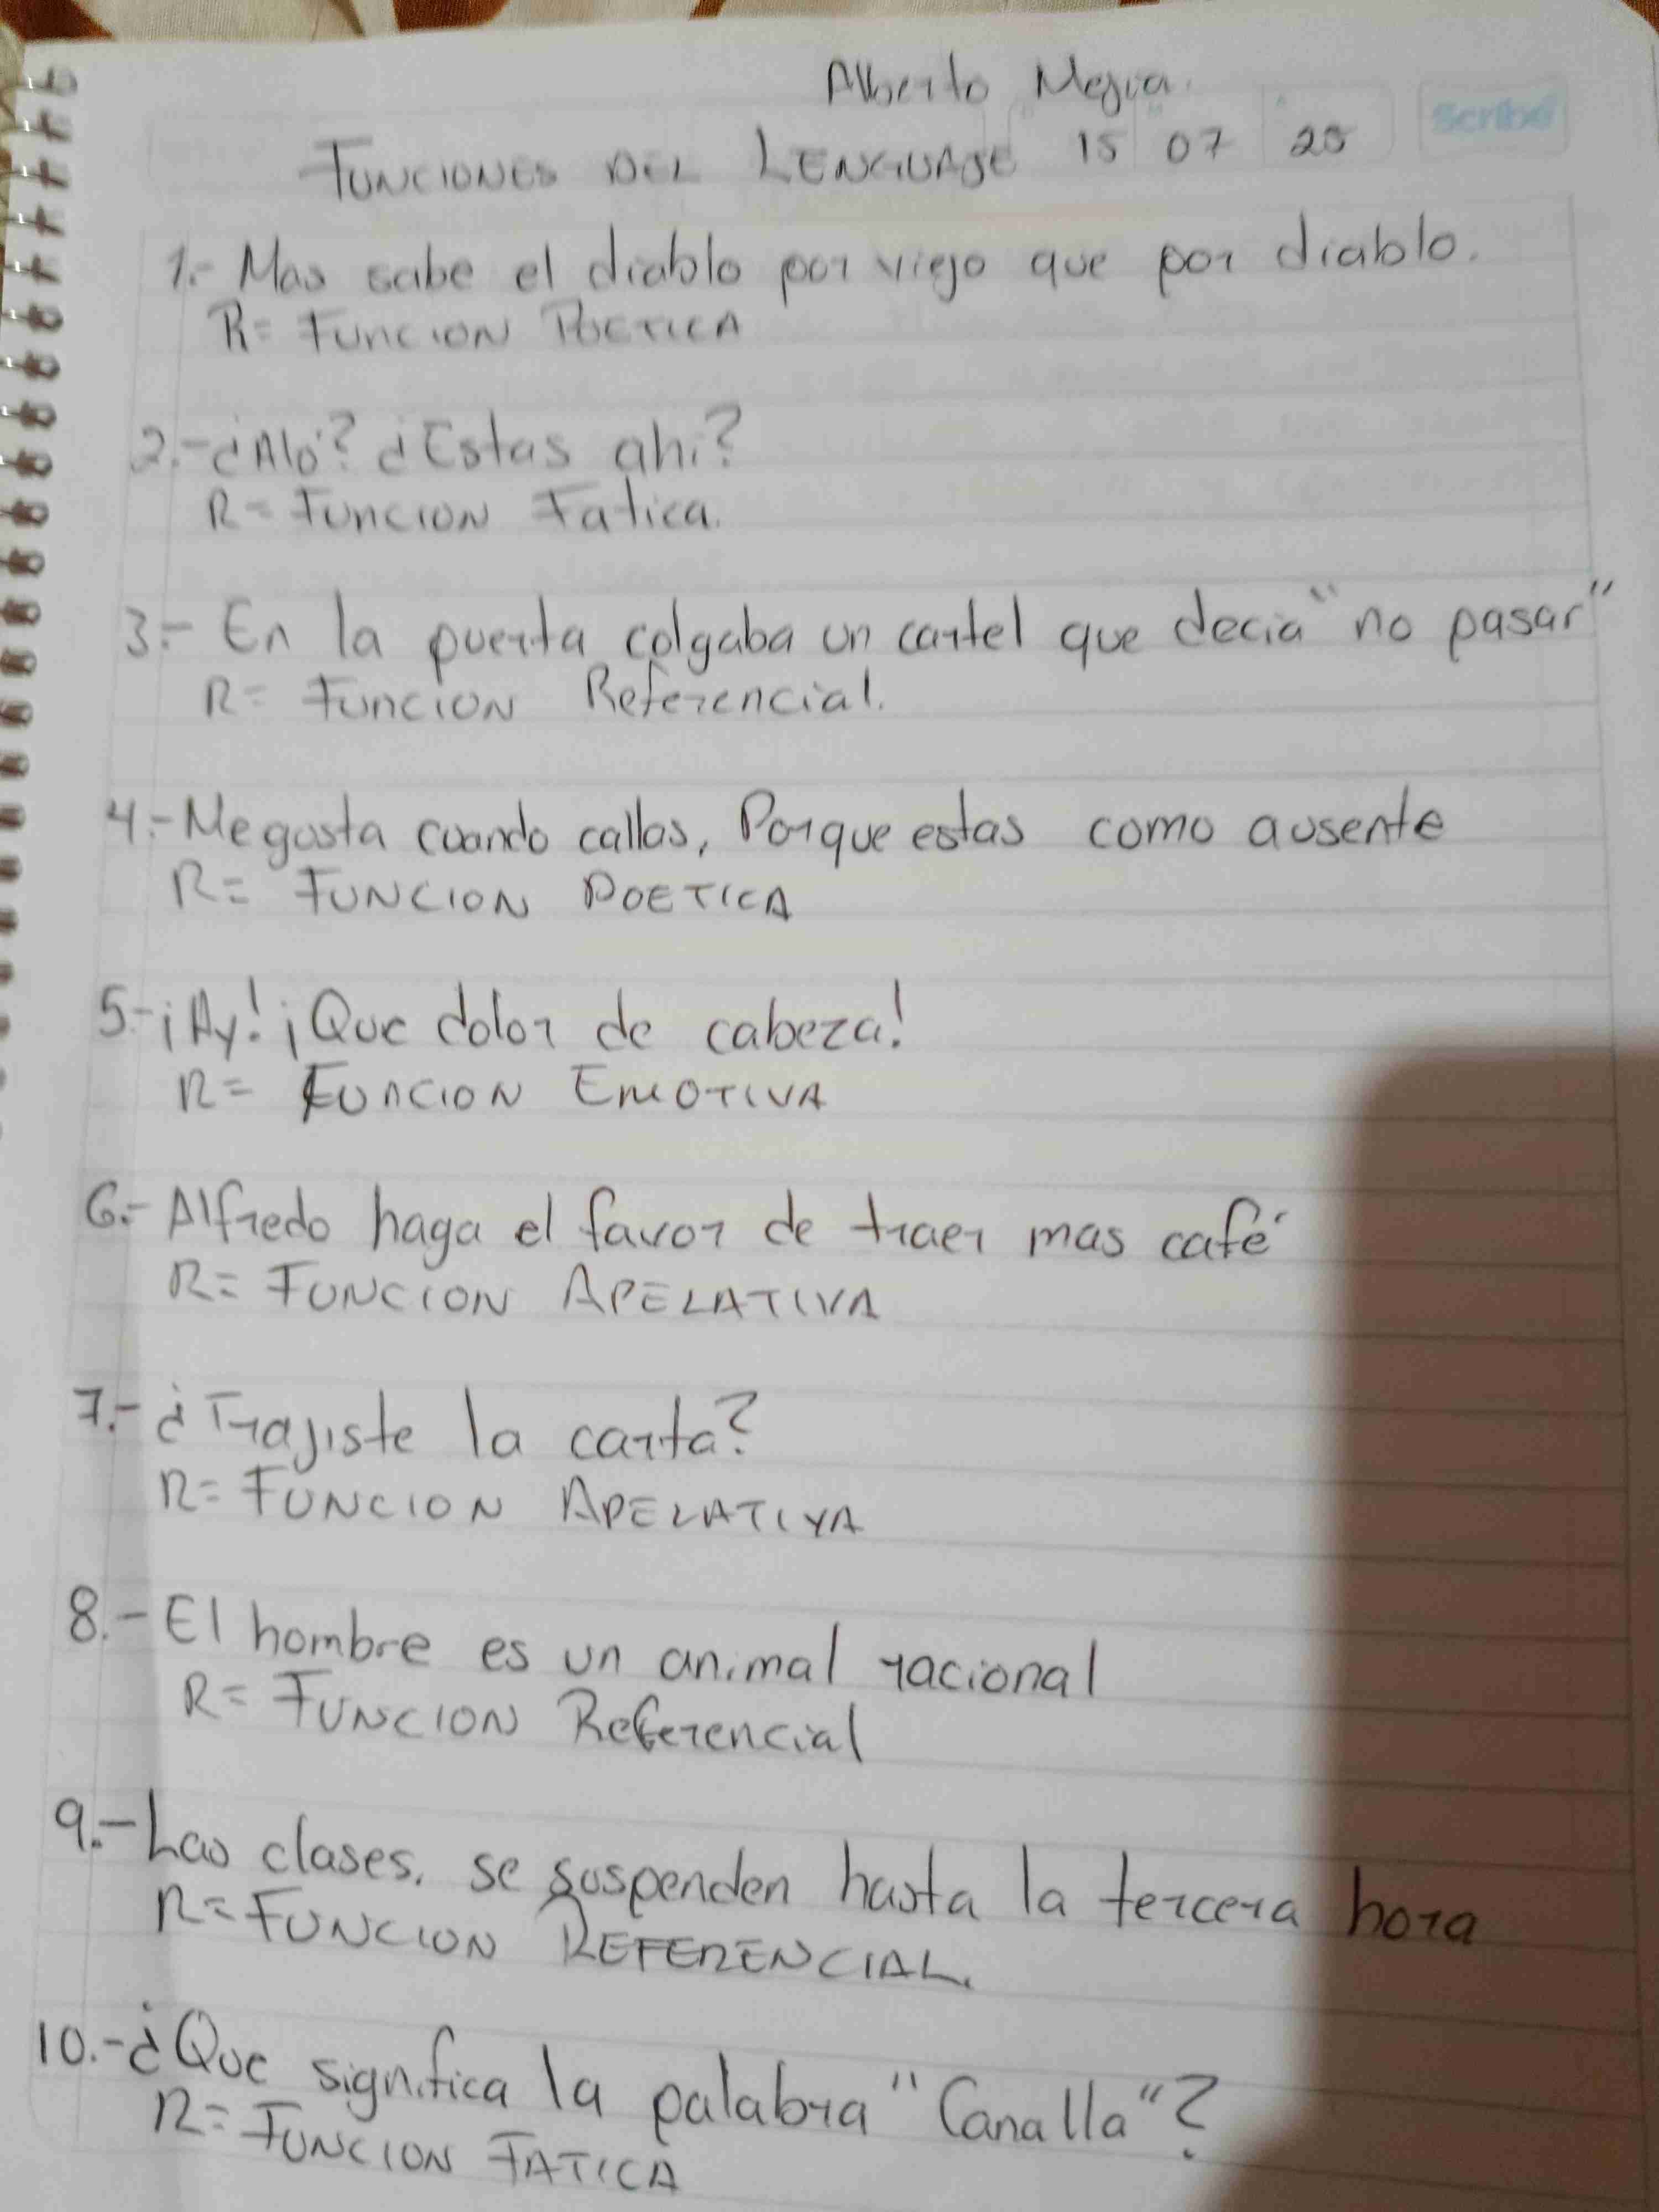 Alberto Mejia.
Scribe
FUNCIONES DEL LENGUAJE 15 07 25
1.- Mas sabe el diablo por viejo que por diablo.
R= FUNCION POETICA
2.- ¿Aló? ¿Estas ahi?
R= FUNCION Fatica.
3.- En la puerta colgaba un cartel que decia "no pasar"
R= FUNCION Referencial.
4.- Me gusta cuando callas, Porque estas como ausente
R= FUNCION POETICA
5.- ¡Ay! ¡Que dolor de cabeza!
R= FUNCION EMOTIVA
6.- Alfredo haga el favor de traer mas café
R= FUNCION APELATIVA
7.- ¿Trajiste la carta?
R= FUNCION APELATIVA
8.- El hombre es un animal racional
R= FUNCION Referencial
9.- Las clases. se suspenden hasta la tercera hora
R= FUNCION REFERENCIAL.
10.- ¿Que significa la palabra "Canalla"?
R= FUNCION FATICA